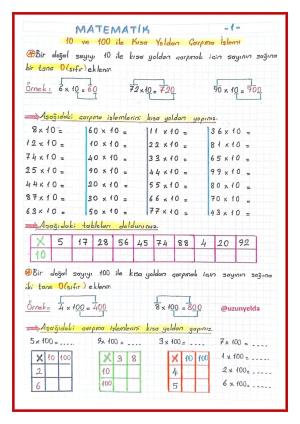 MATEMATİK -1-
10 ve 100 ile Kısa Yoldan Çarpma İşlemi
Bir doğal sayıyı 10 ile kısa yoldan çarpmak için sayının sağına
bir tane 0 (sıfır) eklenir.
Örnek: 6 x 10 = 60 72 x 10 = 720 90 x 10 = 900
Aşağıdaki çarpma işlemlerini kısa yoldan yapınız.
8 x 10 = 60 x 10 = 11 x 10 = 36 x 10 =
12 x 10 = 10 x 10 = 22 x 10 = 81 x 10 =
74 x 10 = 40 x 10 = 33 x 10 = 65 x 10 =
25 x 10 = 90 x 10 = 44 x 10 = 99 x 10 =
44 x 10 = 20 x 10 = 55 x 10 = 43 x 10 =
87 x 10 = 30 x 10 = 66 x 10 = 80 x 10 =
63 x 10 = 50 x 10 = 77 x 10 = 43 x 10 =
Aşağıdaki tabloları doldurunuz.
X 5 17 28 56 45 74 88 4 20 92
10
Bir doğal sayıyı 100 ile kısa yoldan çarpmak için sayının sağına
iki tane 0 (sıfır) eklenir.
Örnek: 4 x 100 = 400 8 x 100 = 800 @uzunyelda
Aşağıdaki çarpma işlemlerini kısa yoldan yapınız.
5 x 100 = .... 9 x 100 = .... 3 x 100 = .... 7 x 100 = ....
X 10 100 X 3 8 X 10 100 1 x 100 = ....
2 10 4 2 x 100 = ....
6 100 5 6 x 100 = ....